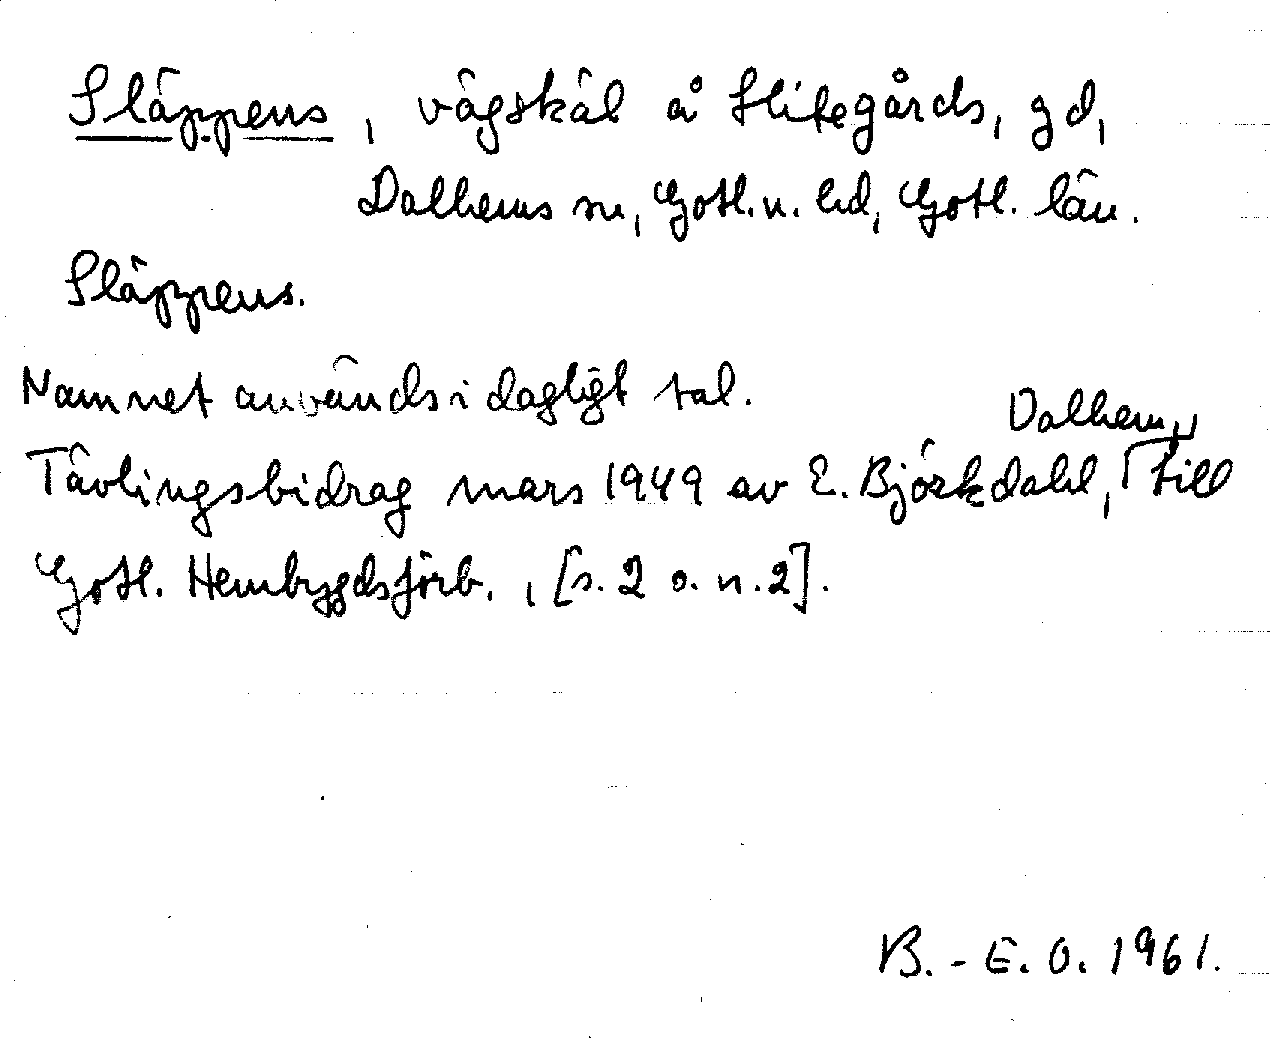 Släppens, vägskäl å Hitegårds, gd,
Dalhems sn, Gotl. n. hd, Gotl. län.
Släppens.
Namnet används i dagligt tal.
Dalhem,
Tävlingsbidrag mars 1949 av E. Björkdahl, till
Gotl. Hembygdsförb., [s. 2 o. n. 2].
B.-E. O. 1961.